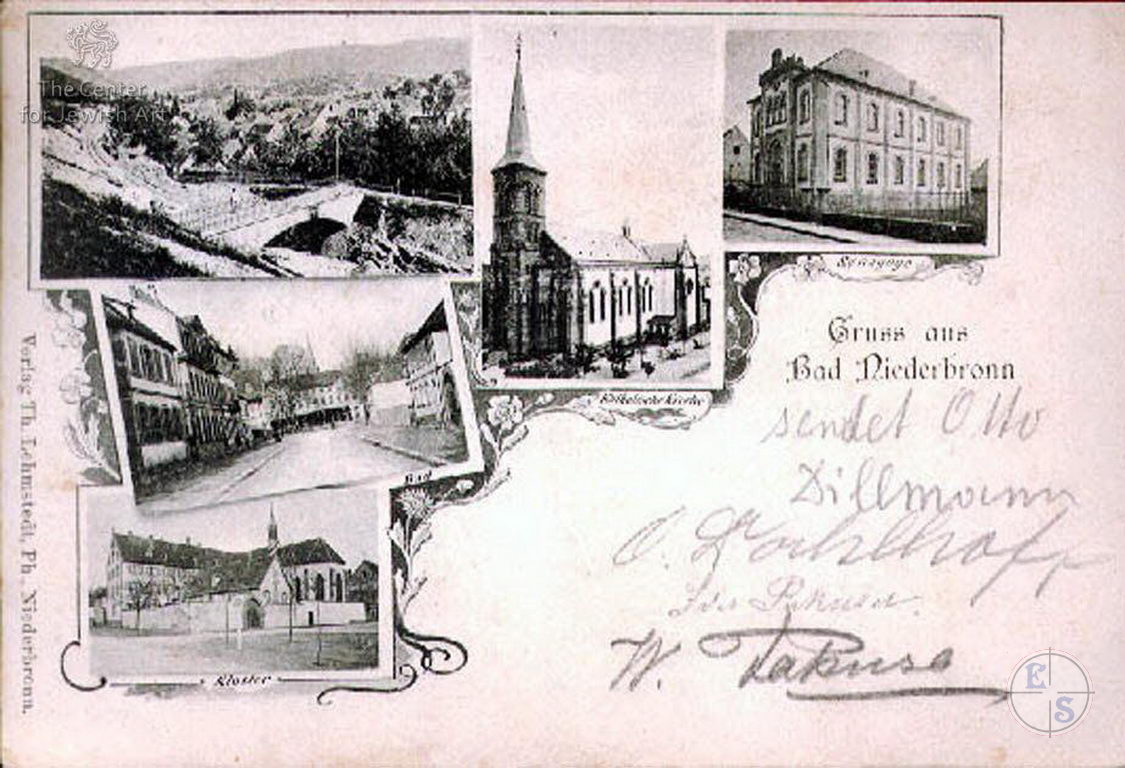 The Center
for Jewish Art
Synagoge
Gruss aus
Bad Niederbronn
Katholische Kirche
sendet Otto
Dillmann
Bad
O.
W. Pakusa
Kloster
E S
Verlag Th. Lehmstedt, Ph. Niederbronn.